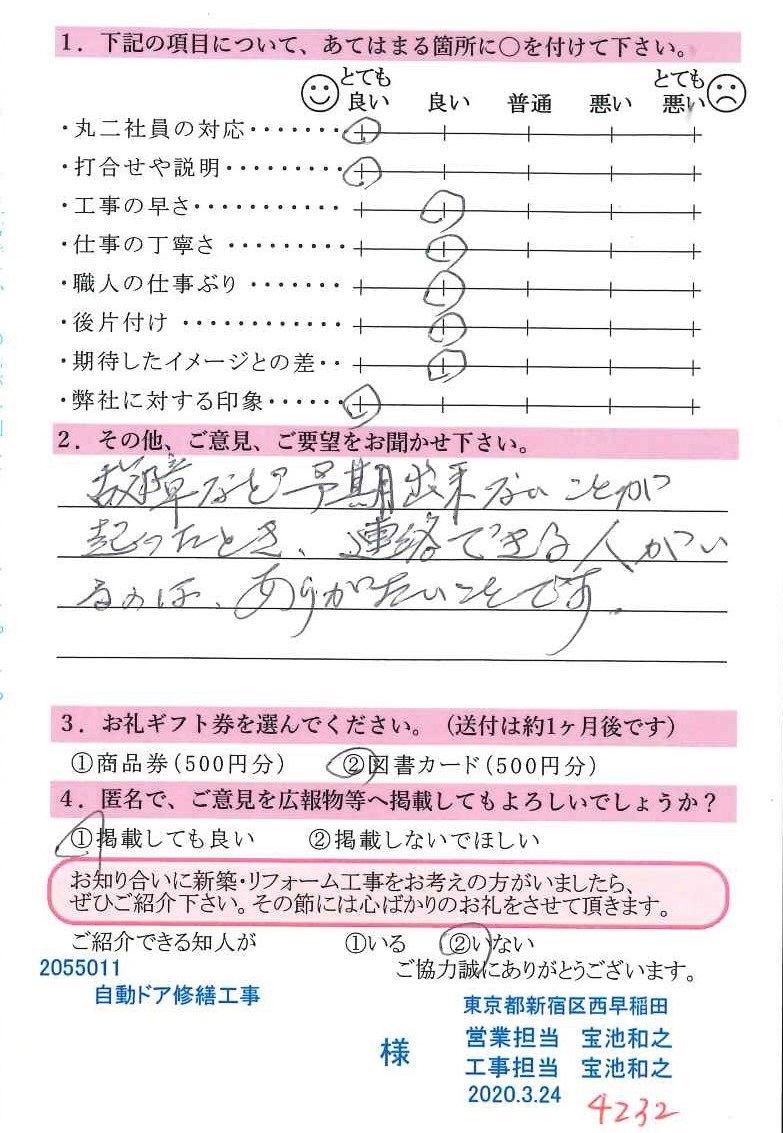 1．下記の項目について、あてはまる箇所に○を付けて下さい。
とても良い 良い 普通 悪い とても悪い
・丸二社員の対応・・・・・・・
・打合せや説明・・・・・・・・・
・工事の早さ・・・・・・・・・・・
・仕事の丁寧さ・・・・・・・・・
・職人の仕事ぶり・・・・・・・
・後片付け・・・・・・・・・・・・
・期待したイメージとの差・・
・弊社に対する印象・・・・・・
2．その他、ご意見、ご要望をお聞かせ下さい。
故障など予期出来ないことが
起ったとき、連絡できる人がい
るのは、ありがたいことです。
3．お礼ギフト券を選んでください。（送付は約1ヶ月後です）
①商品券(500円分) ②図書カード(500円分)
4．匿名で、ご意見を広報物等へ掲載してもよろしいでしょうか？
①掲載しても良い ②掲載しないでほしい
お知り合いに新築・リフォーム工事をお考えの方がいましたら、
ぜひご紹介下さい。その節には心ばかりのお礼をさせて頂きます。
ご紹介できる知人が ①いる ②いない
2055011 ご協力誠にありがとうございます。
自動ドア修繕工事
東京都新宿区西早稲田
様 営業担当 宝池和之
工事担当 宝池和之
2020.3.24
4232